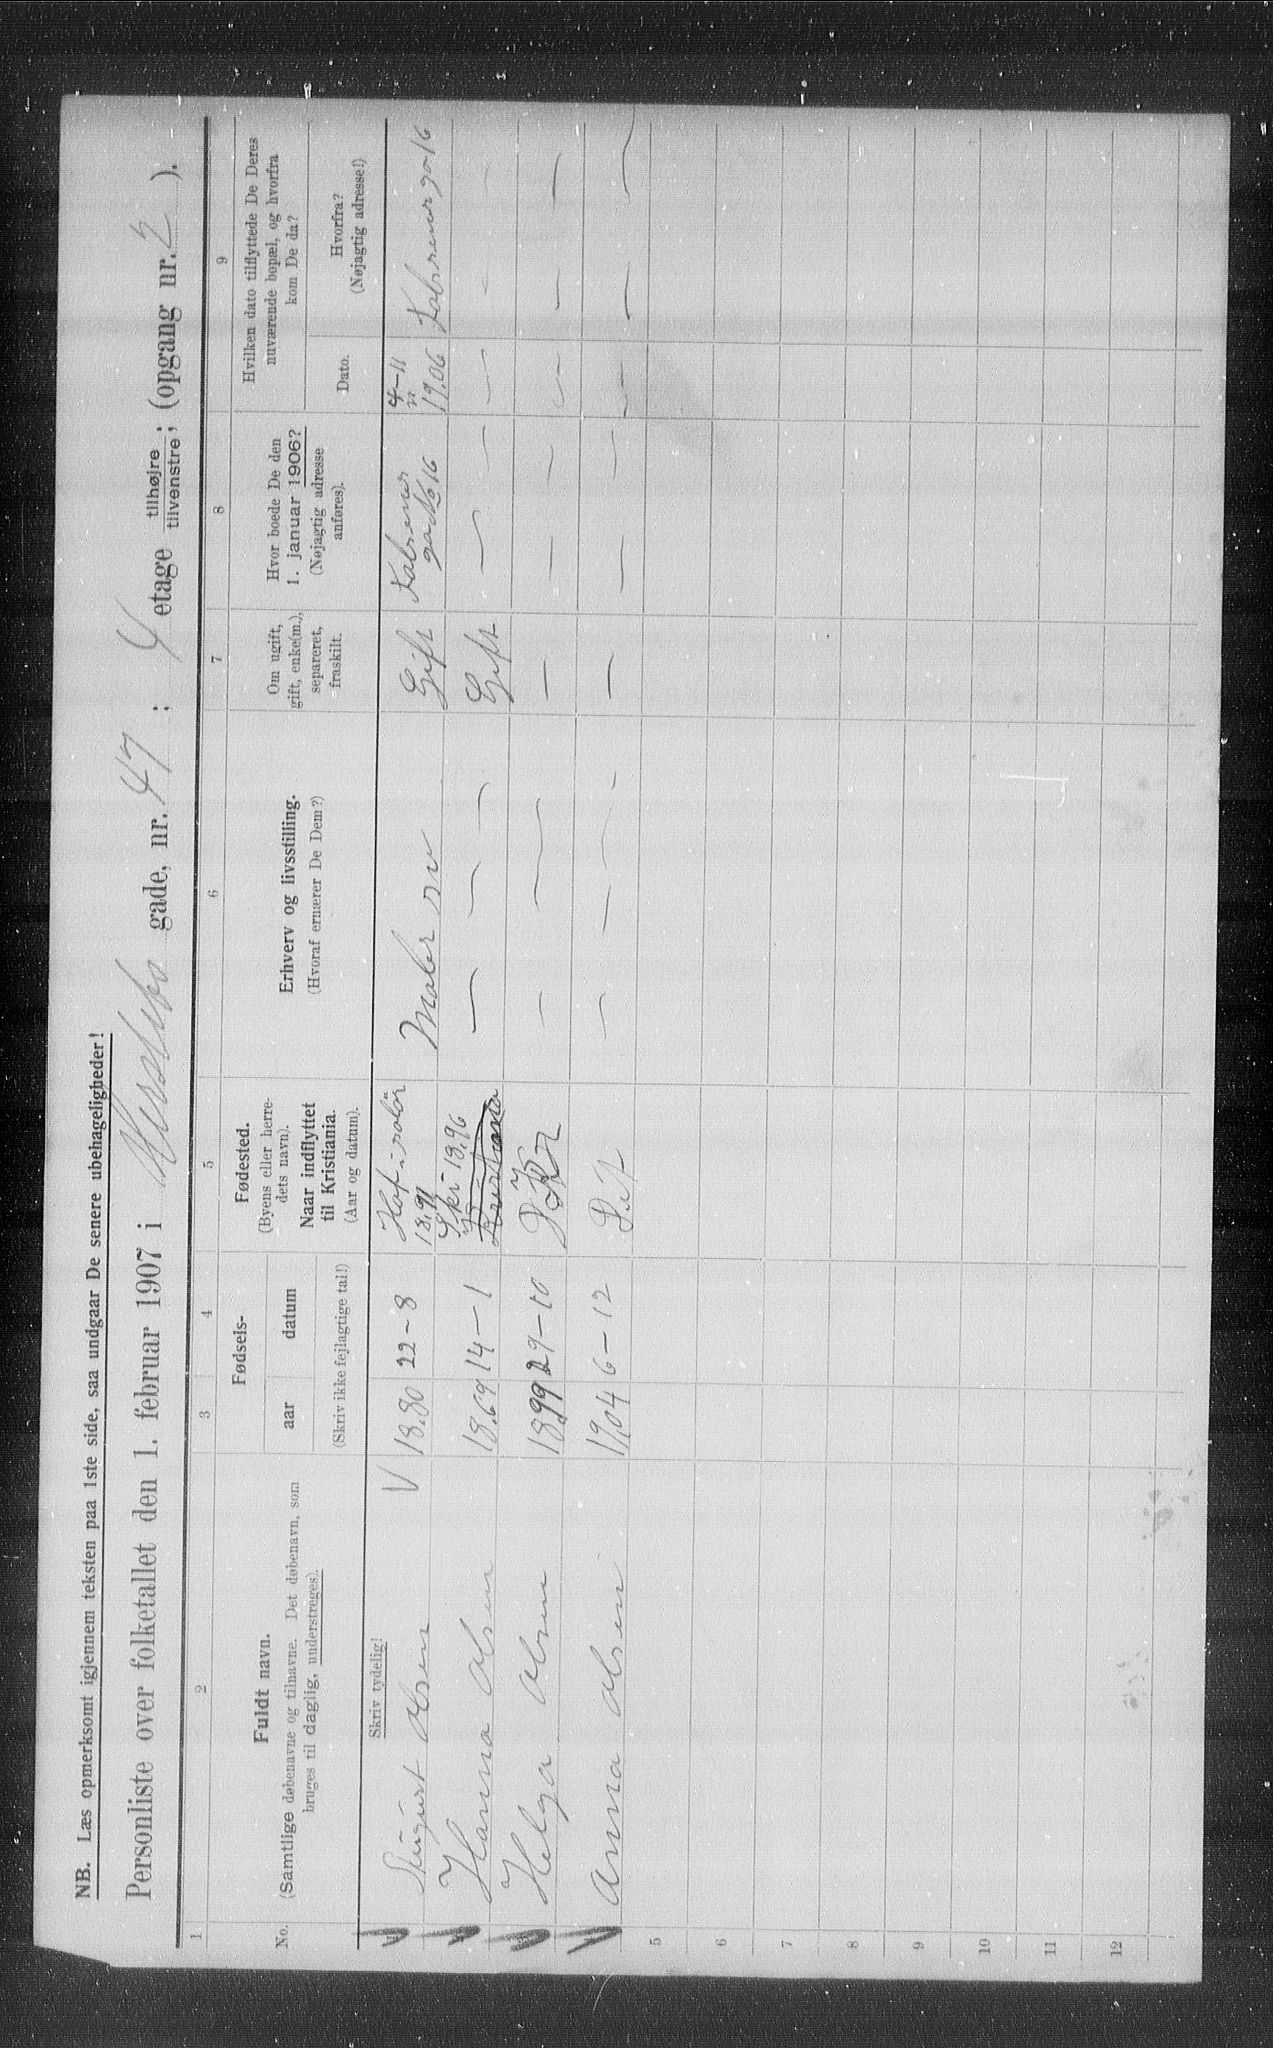 NB. Læs opmerksomt igjennem teksten paa 1ste side, saa undgaar De senere ubehageligheder!
Personliste over folketallet den 1. februar 1907 i Herslebs gade, nr. 47 ; 4 etage tilhøjre / tilvenstre; (opgang nr. 2 ).
1 2 3 4 5 6 7 8 9
No.
Fuldt navn.
(Samtlige døbenavne og tilnavne. Det døbenavn, som
bruges til daglig, understreges).
Fødsels-
aar datum
(Skriv ikke fejlagtige tal!)
Fødested.
(Byens eller herre-
dets navn).
Naar indflyttet
til Kristiania.
(Aar og datum).
Erhverv og livsstilling.
(Hvoraf ernærer De Dem?)
Om ugift,
gift, enke(m.),
separeret,
fraskilt.
Hvor boede De den
1. januar 1906?
(Nøjagtig adresse
anføres).
Hvilken dato tilflyttede De Deres
nuværende bopæl, og hvorfra
kom De da?
Dato.
Hvorfra?
(Nøjagtig adresse!)
Skriv tydelig!
Olsen V 18.80 22-8 18.91 Maler sv Gift 16 4-11 19.06 16
Hanna Olsen 18.69 14-1 18.96 — — — Gift — — — — —
Helga Olsen 1899 29-10 — — — — — — — —
Anna Olsen 19.04 6-12 — — — — — — — — —
5
6
7
8
9
10
11
12